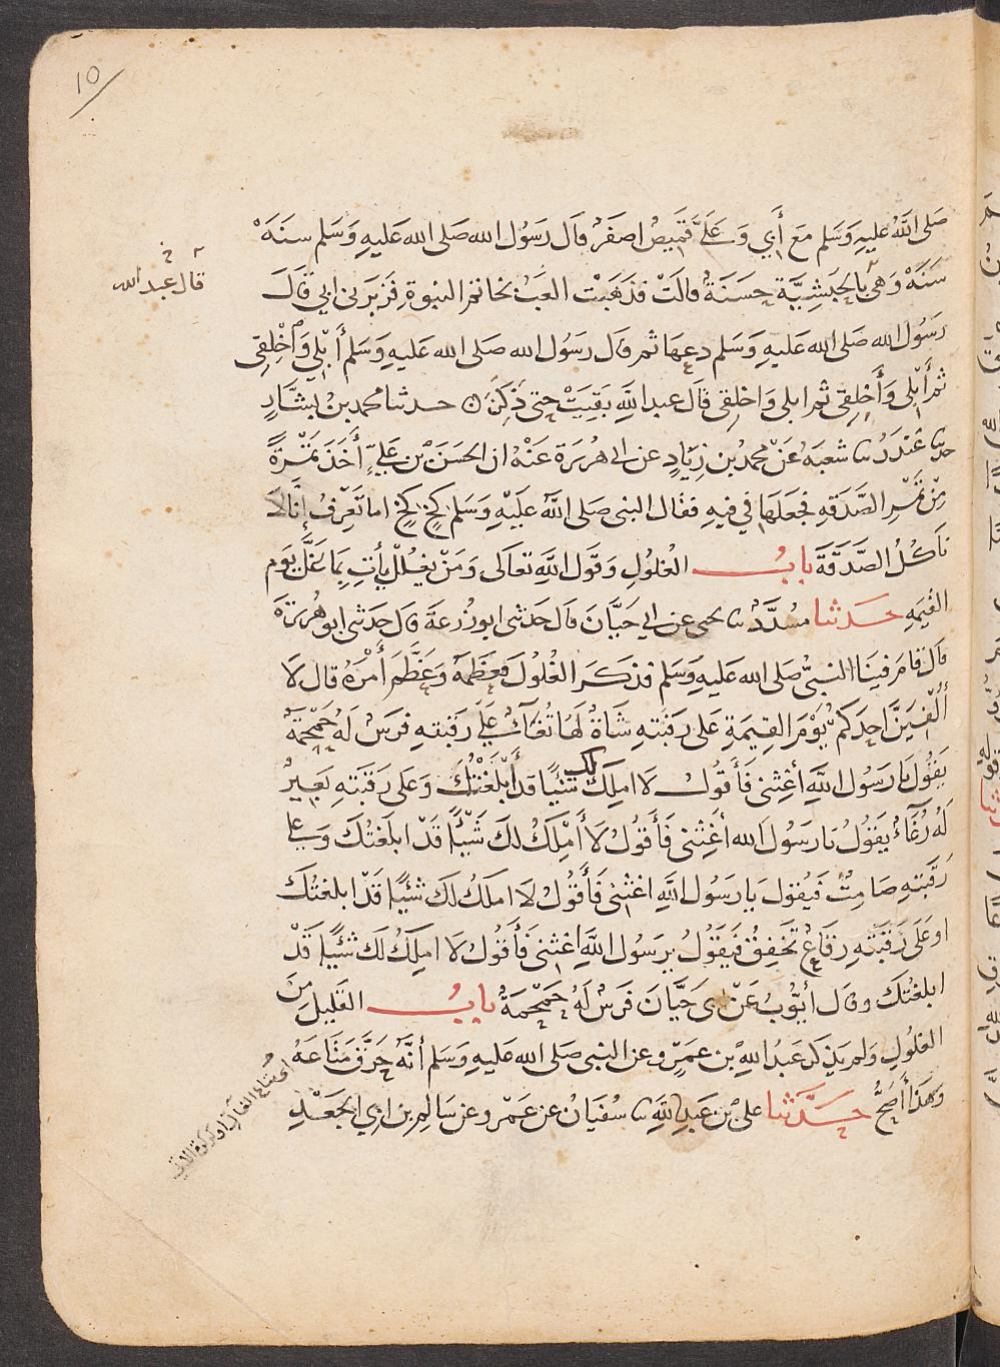 10
صَلى اللَّهُ عليهِ وَسَلم مَعَ أَبِي وَعَلَيَّ قَمِيصٌ اصفَرُ قال رَسُول الله صَلى الله عَليهِ وَسَلم سنَهْ
سَنَهْ وَهِيَ بِالحَبَشِيَّةِ حَسَنَةٌ قالَتْ فَذهَبْت العَبُ بخاتم النبوة فزبَرني ابي قَالَ
قال عبد الله
رَسُول الله صَلى الله عَليهِ وَسَلم دعهَا ثم قال رَسُول الله صَلى الله عَليهِ وَسَلم أَبْلِي وَاَخْلِقِي
ثم أَبْلِي وَأَخْلِقِي ثم ابلي وَاخلِقِي قَال عبد اللَّهِ بَقِيَتْ حتى ذَكِنَ حدثنا محمد بن بشَّارٍ
حدثنا غُنْدَرٌ ثنا شعبَهُ عَنْ محمد بن زِيَادٍ عن ابي هريرَة عَنْهُ ان الحسَنَ بْن عَلِيٍّ أَخَذَ تَمْرَةً
مِنْ تَمْرِ الصَّدَقهِ فجعَلهَا في فِيهِ فقال النبي صَلى اللَّهُ عَليْهِ وَسَلم كِخْ كِخْ اما تَعْرِفُ إِنَّا لَا
نَاكُلُ الصَّدَقَةَ بابُ الغُلُولِ وَقَول اللَّهِ تعَالَى وَمَنْ يغلُلْ يأتِ بِمَا غَلَّ يَوم
القيمهِ حَدثنا مُسَدَّدٌ ثنا يحيى عن ابي حَيَّانَ قال حَدثني ابو زُرعَةَ قال حَدثني ابو هُريَرَة
قال قامَ فينَا النبيُّ صَلى الله عَليهِ وَسَلم فذكَرَ الغُلُولَ فعَظَّمَهُ وَعَظَّمَ أَمْرَهُ قال لَا
أُلْفِيَنَّ احدَكم يَوْمَ القِيمَةِ عَلى رَقبَتهِ شَاةٌ لَهَا ثُغَآءٌ عَلَى رَقبَتهِ فرَسٌ لَهُ حَمْحَمَةٌ
يَقُول يَا رَسُول اللَّهِ أَغِثنى فَأَقولُ لَا املِكُ لك شيْئًا قد أَبْلَغْتُكَ وَعَلى رَقبَتهِ بَعِيرٌ
لَهُ رُغَآءٌ يَقُولُ يَا رَسُول الله أَغِثْنى فَأَقُولُ لَا أَمْلِكُ لكَ شَيْئًا قَدْ ابلَغتُكَ وَعَلى
رَقبَتهِ صَامِتٌ فَيَقول يَا رَسُول اللَّهِ اغثنى فَأَقُولُ لَا املكُ لكَ شَيئًا قَدْ ابلغتُكَ
او عَلَى رَقَبَتهِ رِقَاعٌ تَخفِقُ فَيَقُولُ يرَسُول اللَّهِ اغثنى فَأَقُولُ لَا املِكُ لكَ شَيْئًا قَدْ
ابلغتُكَ وقال أَيُّوبُ عَنْ أبى حَيَّانَ فَرَسٌ لَهُ حَمْحَمَةٌ بابُ القَليلِ مِنَ
الغلُولِ وَلم يَذكر عَبدُ اللَّهِ بن عمَرٍو عن النبي صَلى الله عَليهِ وَسَلم أنَّهُ حَرَّقَ مَتَاعَهُ
وَهَذَا أَصَحُّ حَدَّثنا عليُّ بن عَبدِ اللَّهِ ثنا سُفيَانُ عن عَمْرو عن سَالِمِ بن ابِي الجَعْدِ
اى متاع الغال